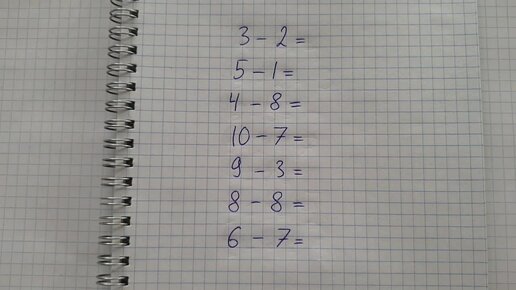 3 - 2 =
5 - 1 =
4 - 8 =
10 - 7 =
9 - 3 =
8 - 8 =
6 - 7 =